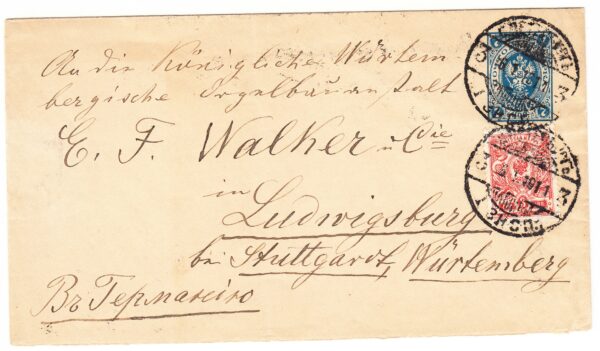 An die Königliche Würtem
bergische Orgelbauanstalt
E. F. Walker u Cie
in
Ludwigsburg
bei Stuttgardt, Würtemberg
Въ Германію